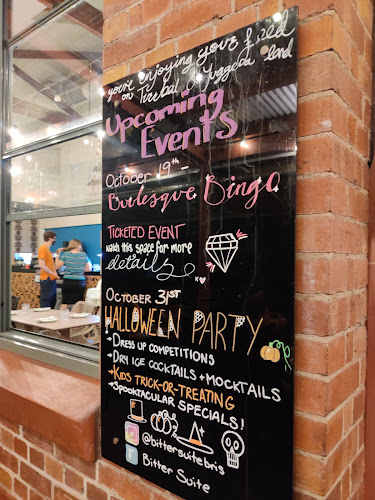 you're enjoying your
on Turrbal & Yuggera land
Upcoming
Events
October 19th -
Burlesque Bingo
TICKETED EVENT
watch this space for more
details
OCTOBER 31ST
HALLOWEEN PARTY
• DRESS UP COMPETITIONS
• DRY ICE COCKTAILS + MOCKTAILS
• KIDS TRICK-OR-TREATING
• SPOOKTACULAR SPECIALS!
@bittersuitebris
Bitter Suite